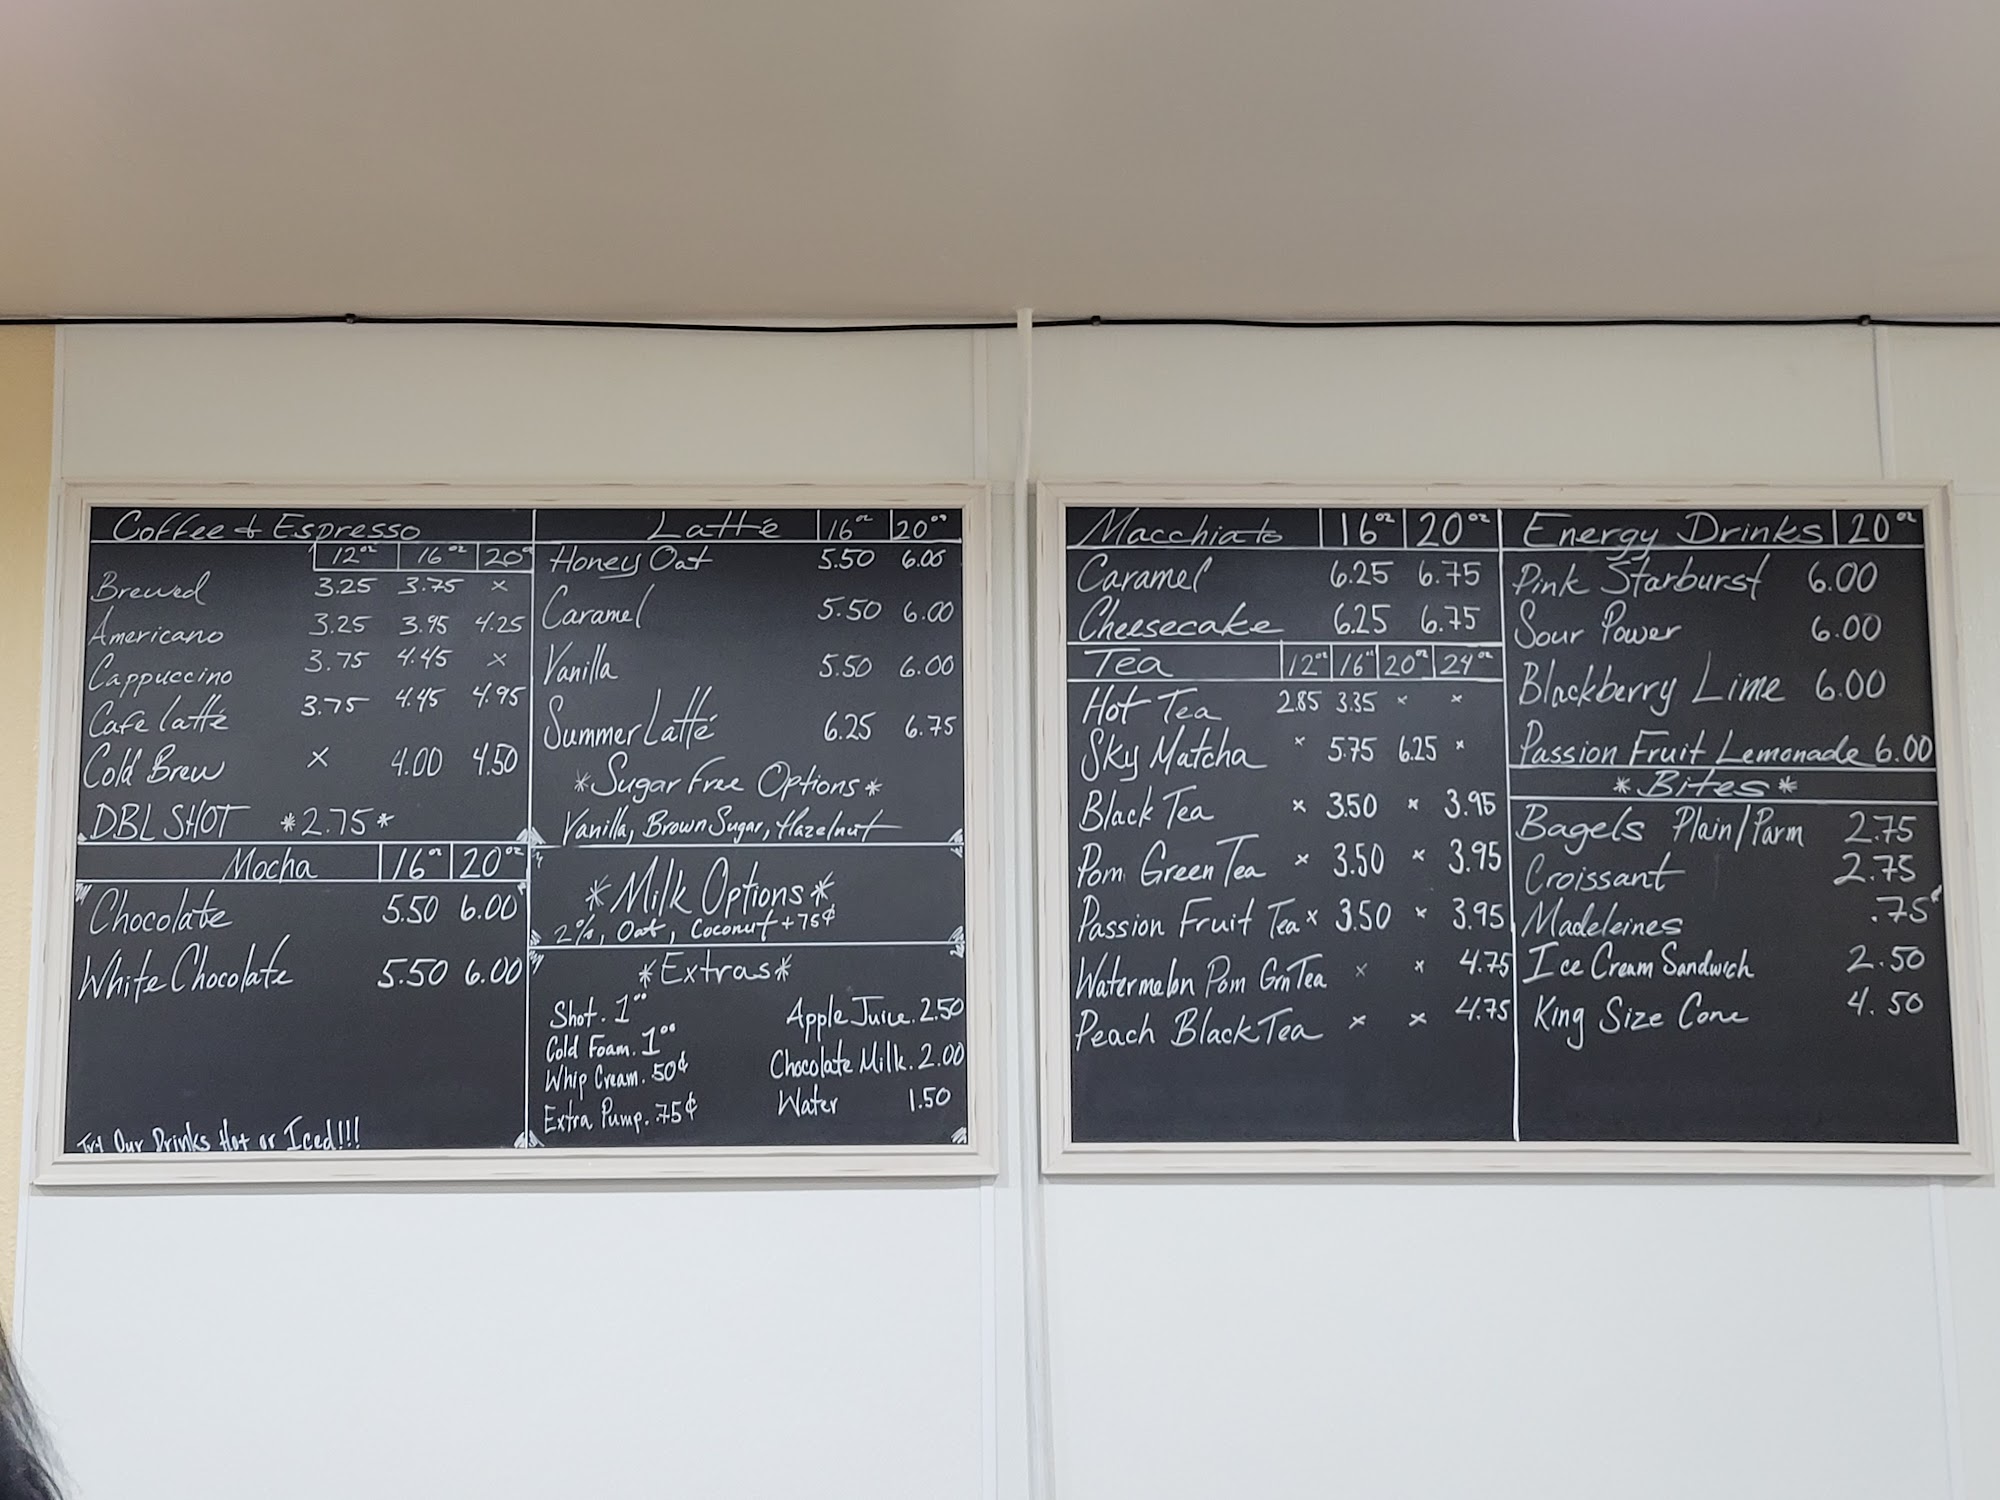 Coffee & Espresso
12oz 16oz 20oz
Brewed 3.25 3.75 x
Americano 3.25 3.95 4.25
Cappuccino 3.75 4.45 x
Cafe Latté 3.75 4.45 4.95
Cold Brew x 4.00 4.50
DBL SHOT *2.75*
Mocha 16oz 20oz
Chocolate 5.50 6.00
White Chocolate 5.50 6.00
Try Our Drinks Hot or Iced!!!
Latté 16oz 20oz
Honey Oat 5.50 6.00
Caramel 5.50 6.00
Vanilla 5.50 6.00
Summer Latté 6.25 6.75
*Sugar Free Options*
Vanilla, Brown Sugar, Hazelnut
*Milk Options*
2%, Oat, Coconut +75¢
*Extras*
Shot. 1.00
Cold Foam. 1.00
Whip Cream. 50¢
Extra Pump. .75¢
Apple Juice. 2.50
Chocolate Milk. 2.00
Water 1.50
Macchiato 16oz 20oz
Caramel 6.25 6.75
Cheesecake 6.25 6.75
Tea 12oz 16oz 20oz 24oz
Hot Tea 2.85 3.35 x x
Sky Matcha x 5.75 6.25 x
Black Tea x 3.50 x 3.95
Pom Green Tea x 3.50 x 3.95
Passion Fruit Tea x 3.50 x 3.95
Watermelon Pom Grn Tea x x 4.75
Peach Black Tea x x 4.75
Energy Drinks 20oz
Pink Starburst 6.00
Sour Power 6.00
Blackberry Lime 6.00
Passion Fruit Lemonade 6.00
*Bites*
Bagels Plain/Parm 2.75
Croissant 2.75
Madeleines .75¢
Ice Cream Sandwich 2.50
King Size Cone 4.50